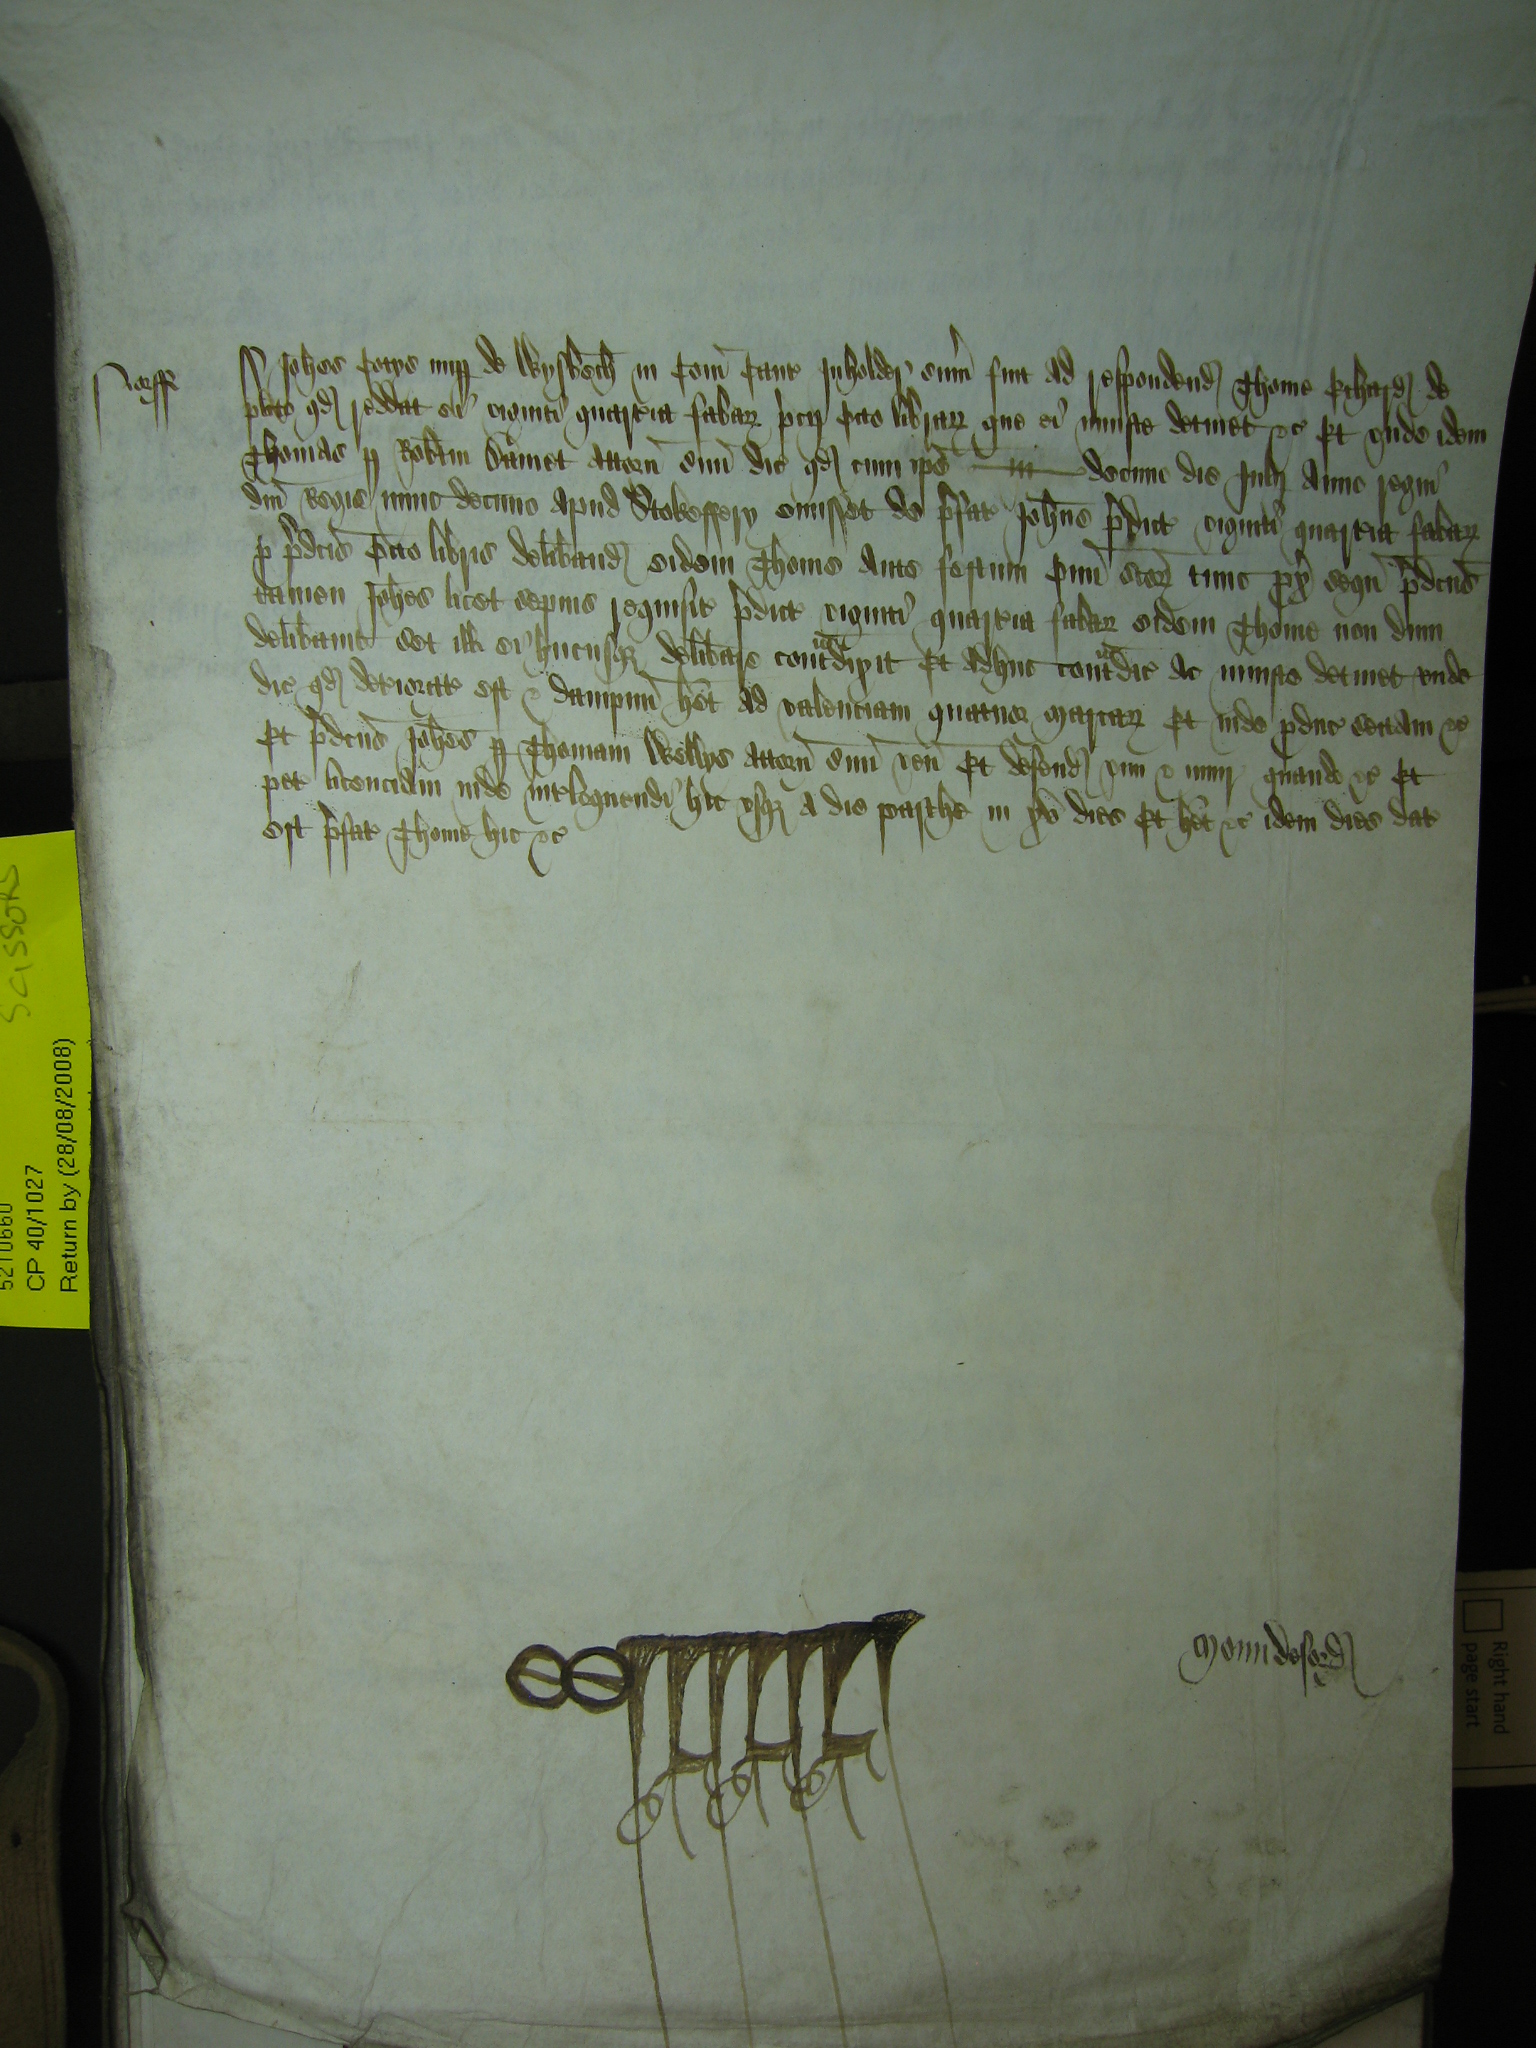 Norff
Johes Cotys nup de Wysbech in Com Cant Inholder sum fuit ad respondend Thome Richard de
plito qd reddat ei viginti quarteria fabar pcij octo librar que ei iniuste detinet &c Et unde idem
Thomas p Robtm attorn suum dic qd cum ipse decimo die Julij Anno regni
dni Regis nunc decimo apud Stokefferry emisset de pfato Johne pdict viginti quarteria fabar
p pdcis octo libris deliband eidem Thome ante festum Omi Scor tunc px sequ pdcus
tamen Johes licet sepius requisit pdict viginti quarteria fabar eidem Thome non dum
delibavit set ill ei hucusq delibare contradixit Et adhuc contradic ac iniuste detinet unde
dic qd deteriorat est & dampnum het ad valenciam quatuor marcar Et inde pduc sectam &c
Et pdcus Johes p Thomam Wellys attorn suum ven Et defend vim & iniur quando &c Et
pet licenciam inde intloquendi hic usq a die pasche in xv dies Et het &c idem dies dat
est pfato Thome hic &c
Mounideford
SCISSORS
CP 40/1027
Return by (28/08/2008)
Right hand
page start